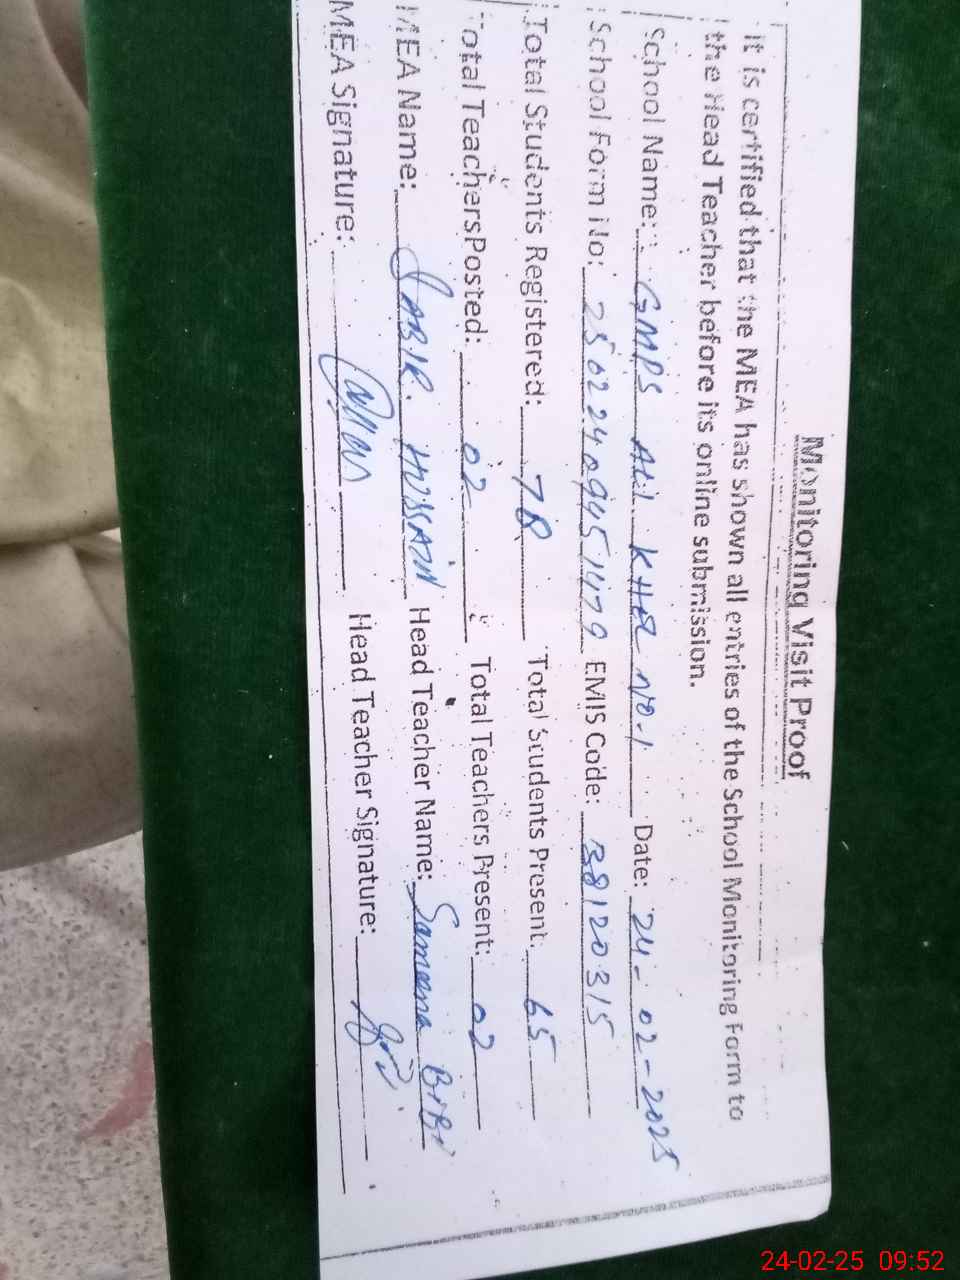 Monitoring Visit Proof
It is certified that the MEA has shown all entries of the School Monitoring Form to
the Head Teacher before its online submission.
School Name: GMPS Akil KHEL NO-1 Date: 24-02-2025
School Form No: 25022409451479 EMIS Code: 38120315
Total Students Registered: 78 Total Students Present: 65
Total Teachers Posted: 02 Total Teachers Present: 02
MEA Name: SABIR HUSSAIN Head Teacher Name: Sameena BIBI
MEA Signature: Head Teacher Signature:
24-02-25 09:52